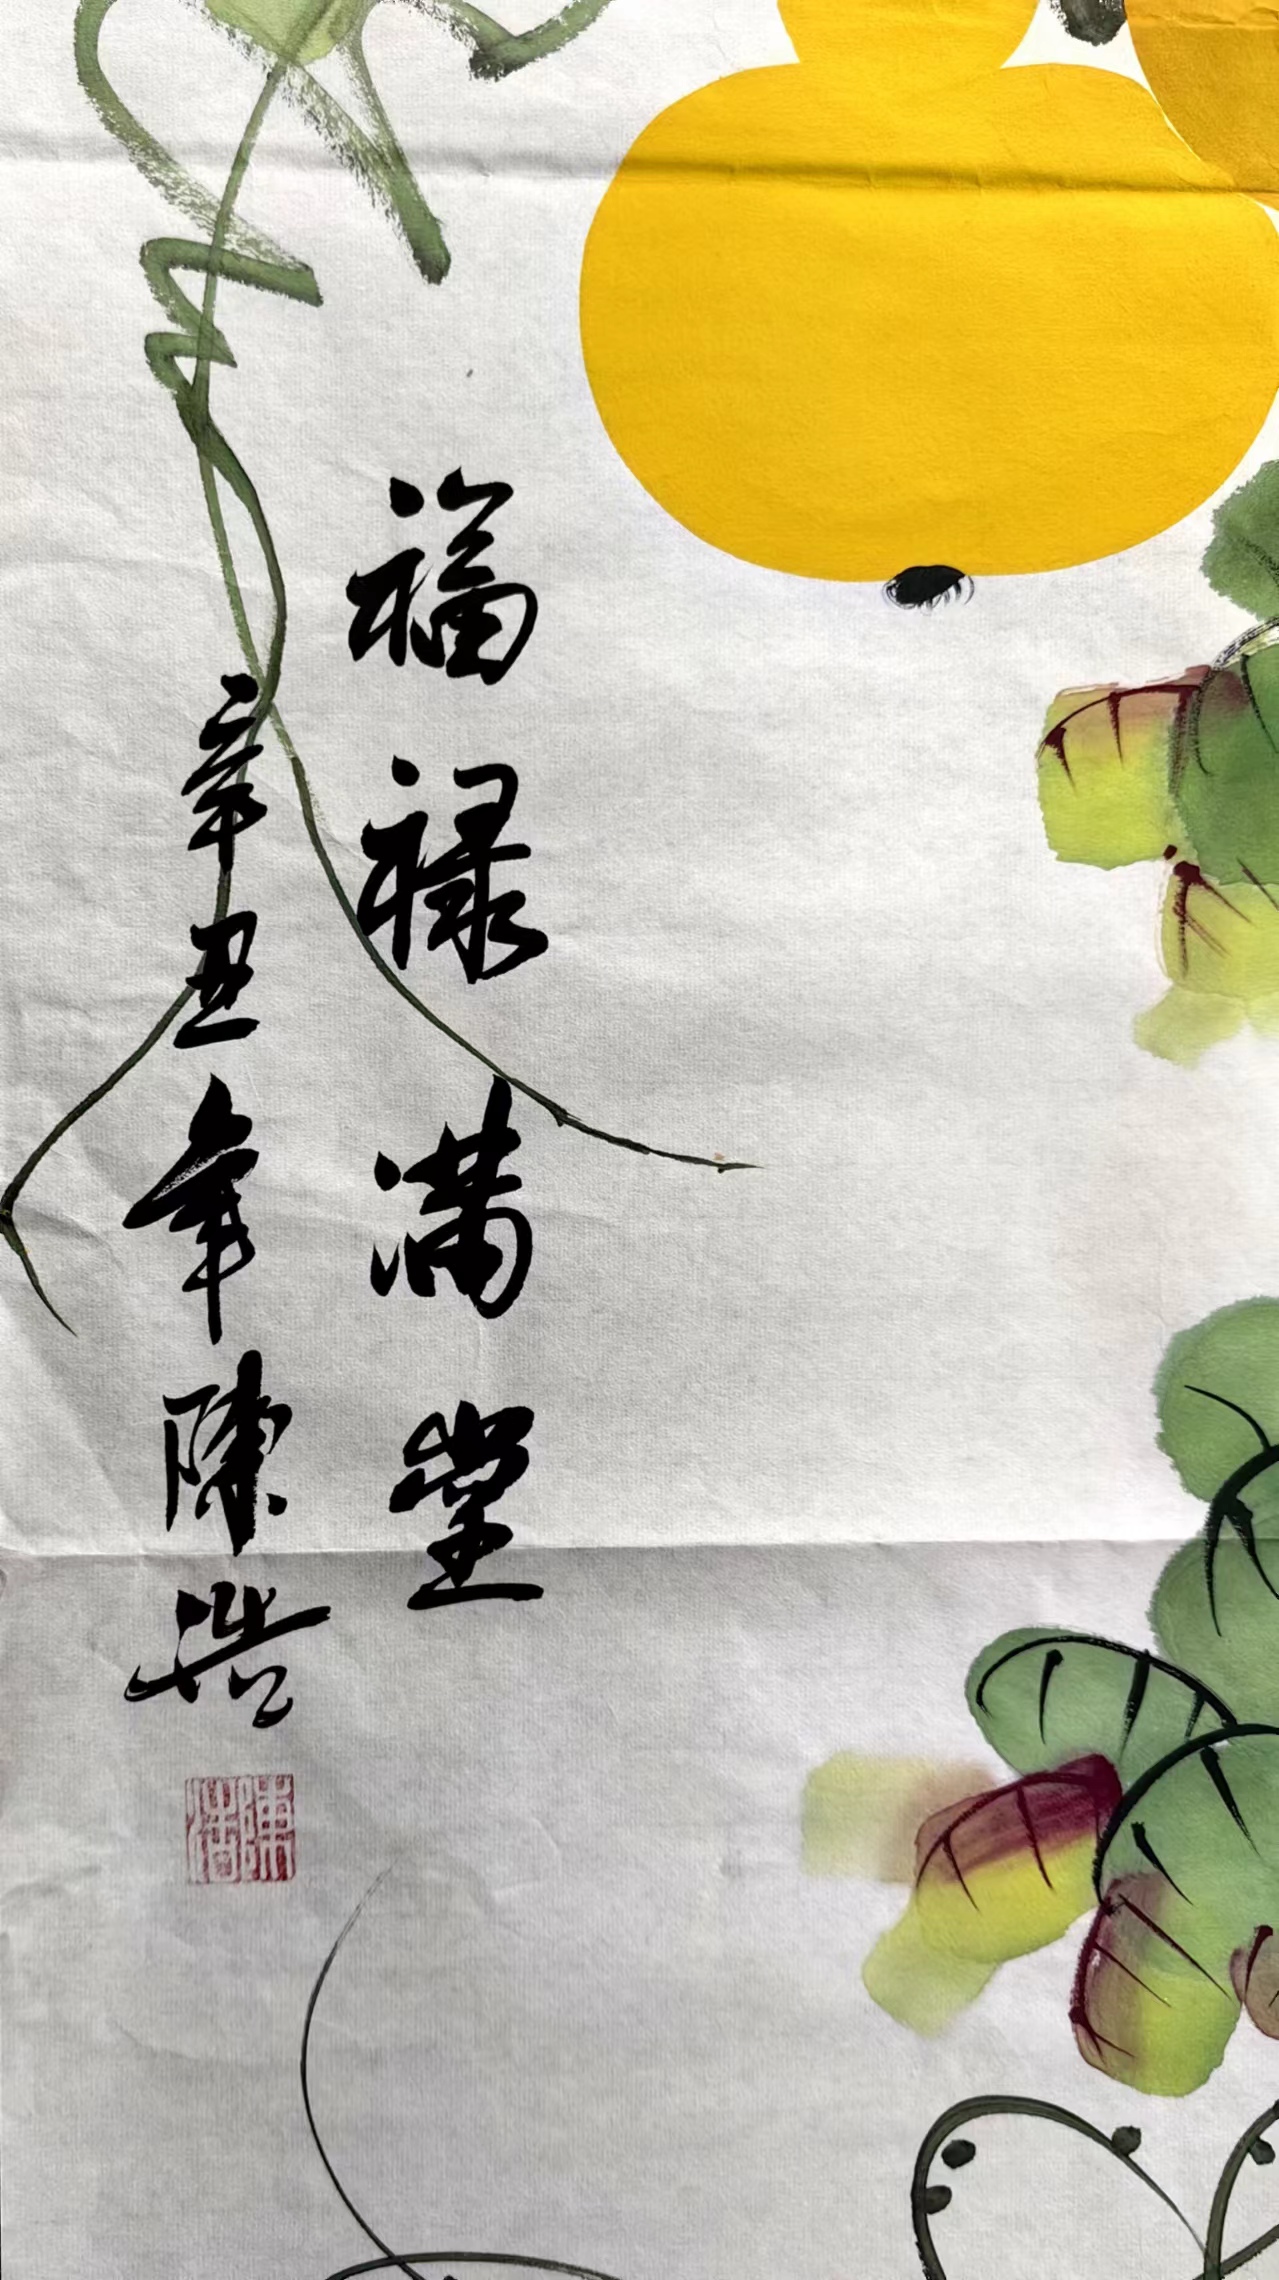 福禄满堂
辛丑年陳浩
陳浩